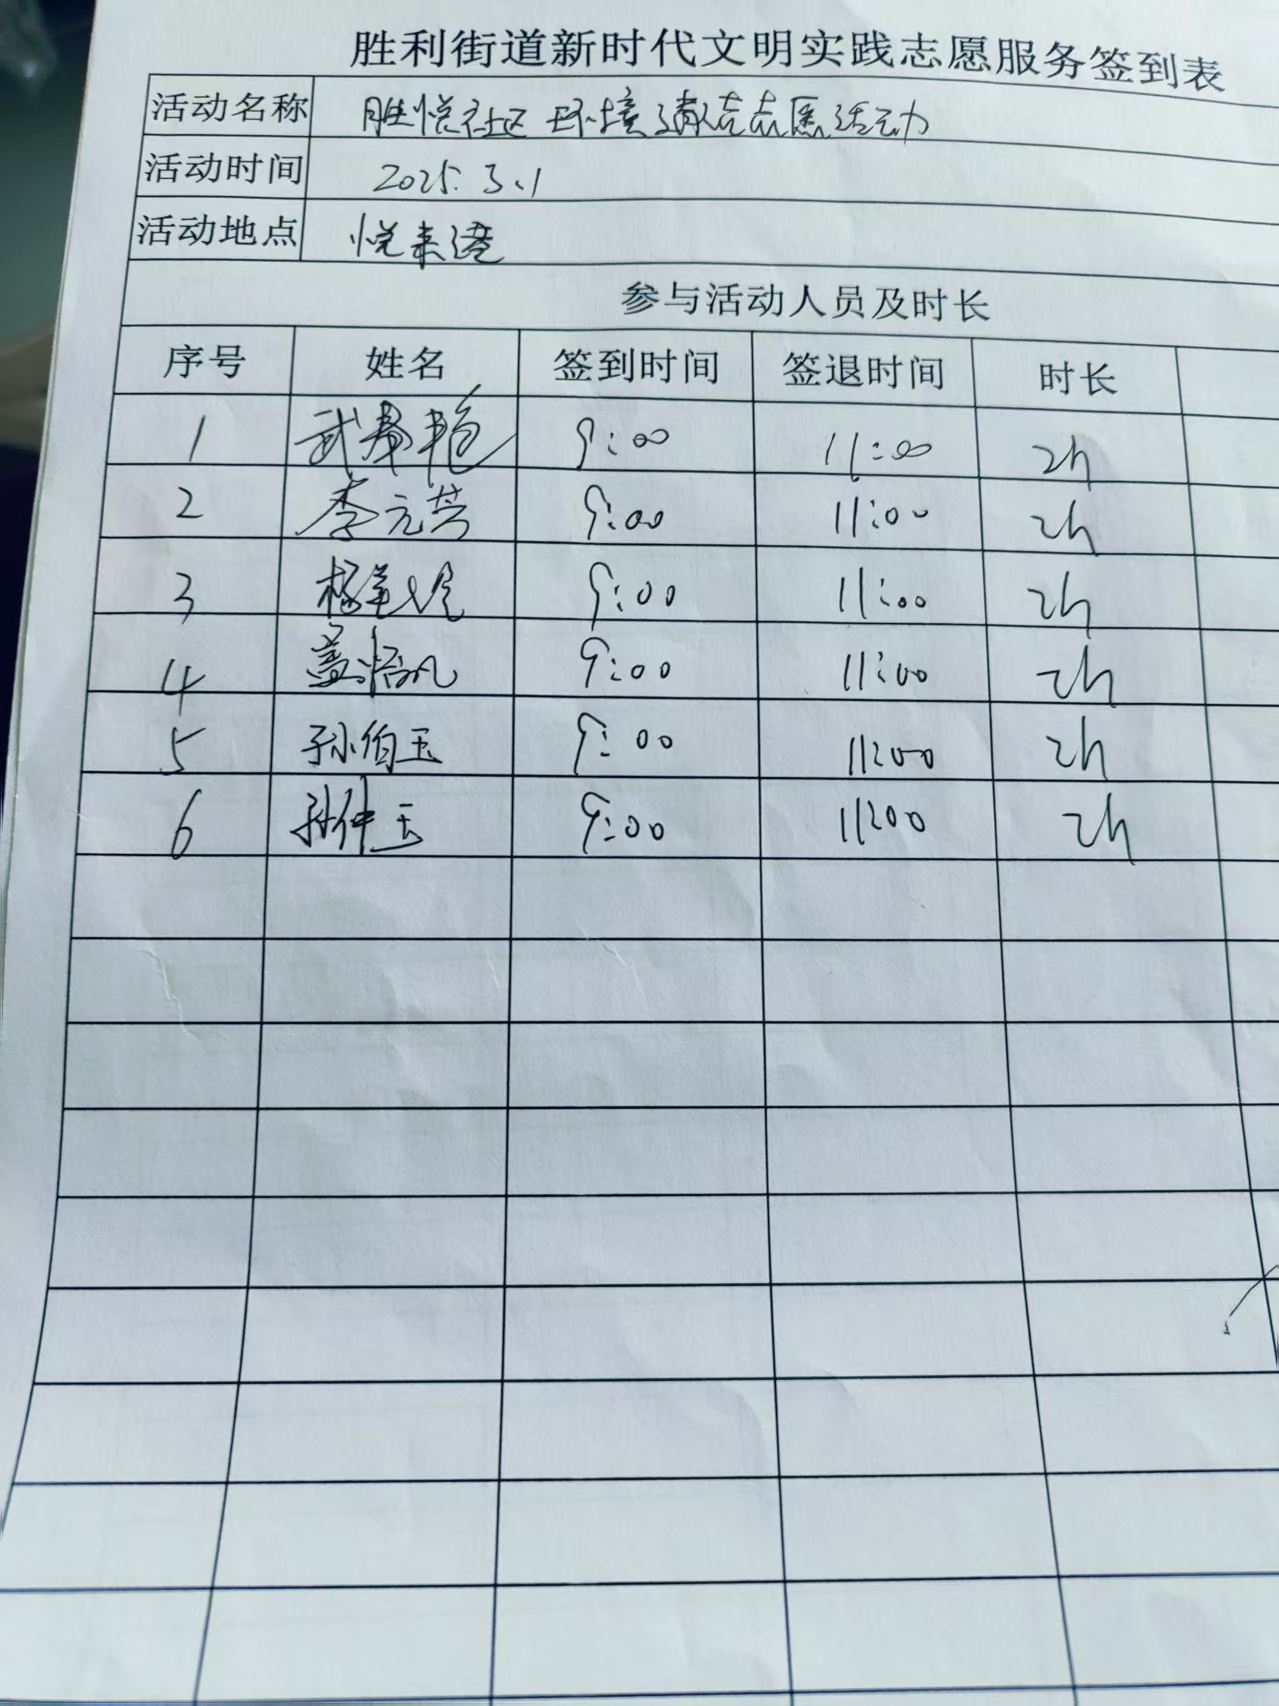 胜利街道新时代文明实践志愿服务签到表
活动名称 胜悦社区环境清洁志愿活动
活动时间 2025.3.1
活动地点 悦来港
参与活动人员及时长
序号 姓名 签到时间 签退时间 时长
1 武 艳 9:00 11:00 2h
2 李元芳 9:00 11:00 2h
3 杨 9:00 11:00 2h
4 盖 凡 9:00 11:00 2h
5 孙伯玉 9:00 11:00 2h
6 孙仲玉 9:00 11:00 2h